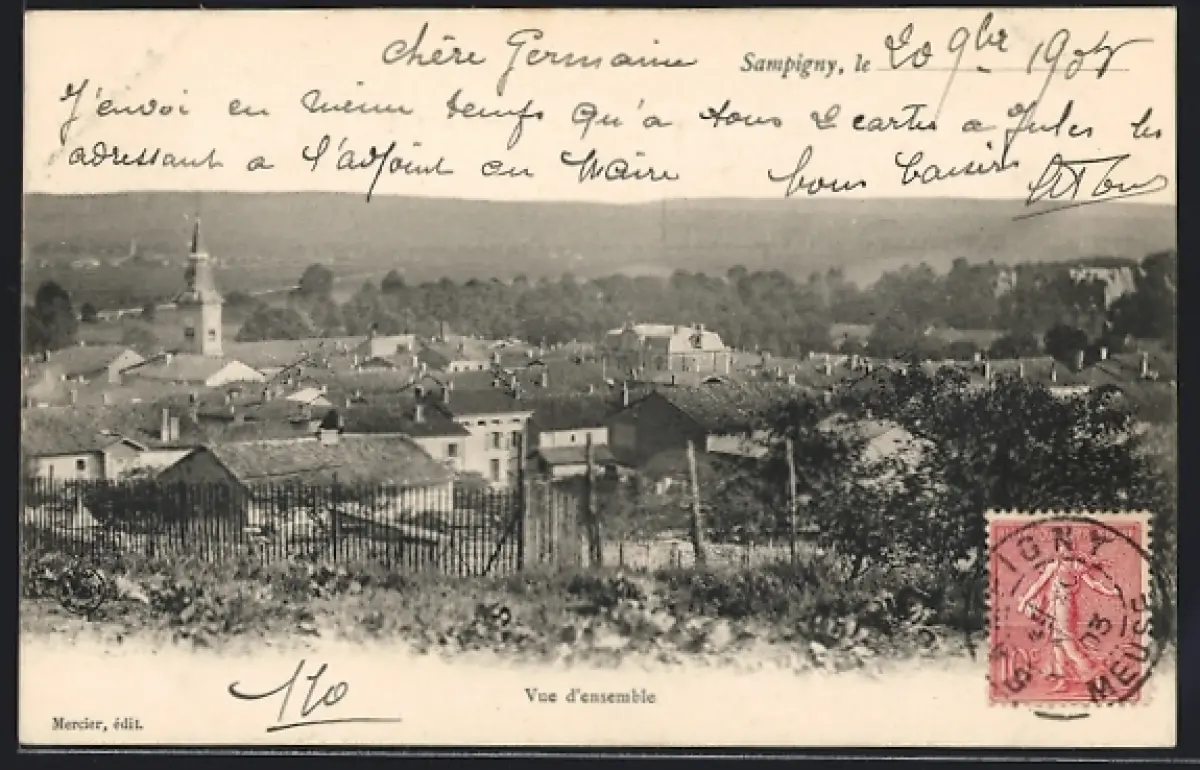 chère Germaine
Sampigny, le 20 9bre
J'envoi en même temps qu'à tous 2 cartes a Jules les
adressant a l'adjoint au Maire bons baisers
110
Vue d'ensemble
Mercier, édit.
10c
IGNY
03
MEUSE